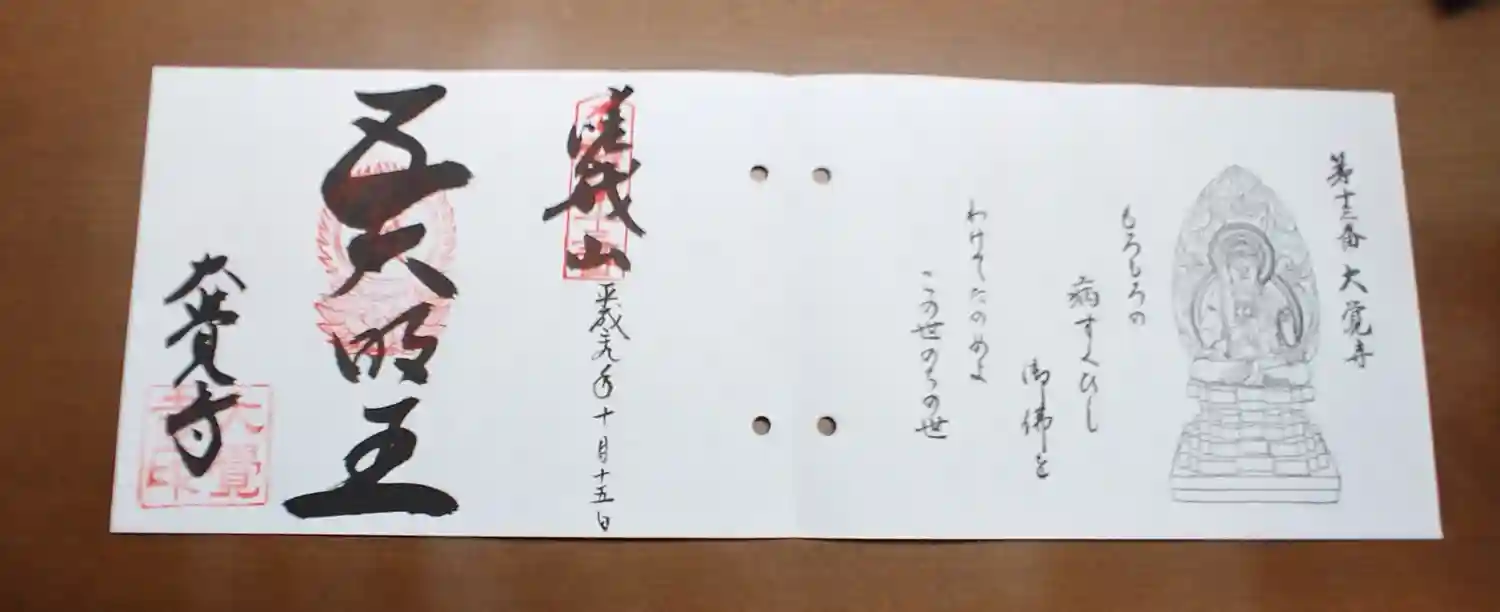 第十三番 大覚寺
もろもろの
病すくひし
御佛を
わけてたのめよ
この世のちの世
嵯峨山
平成年十月十五日
五大明王
大覺寺
大覺
寺印